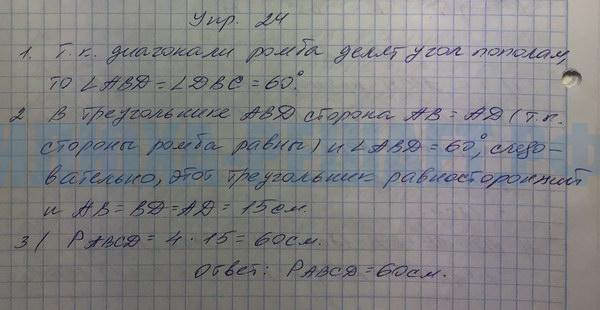 Упр. 24
1. Т.к. диагонали ромба делят угол пополам,
то ∠ABD = ∠DBC = 60°.
2 В треугольнике ABD сторона AB = AD (т.к.
стороны ромба равны) и ∠ABD = 60°, следо-
вательно, этот треугольник равносторонний
и AB = BD = AD = 15 см.
3) P ABCD = 4 · 15 = 60 см.
Ответ: P ABCD = 60 см.